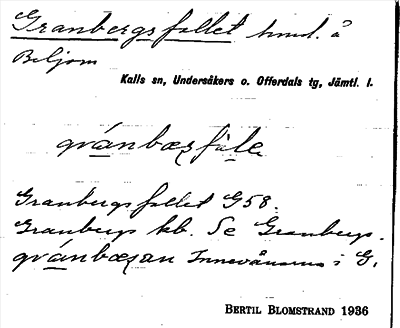 Granbergsfallet hmd. å
Biljom
Kalls sn, Undersåkers o. Offerdals tg, Jämtl. l.
gránbæʒfàle
Granbergsfallet G58.
Granbergs kb. Se Granberg.
gránbæʒan Innevånarna i G.
BERTIL BLOMSTRAND 1936